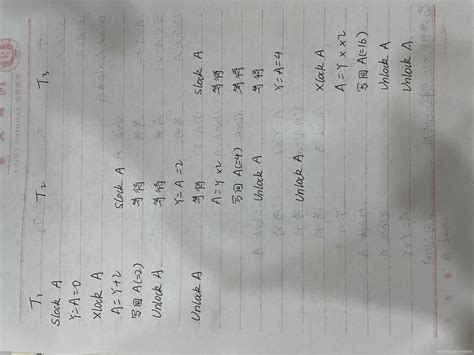 T₁ T₂ T₃
Slock A
Y=A=0
Xlock A
A=Y+2 Slock A
写回A(=2) 等待
Unlock A. 等待
Y=A=2
Unlock A 等待 Slock A
A=Y×2 等待
写回A(=4) 等待
Unlock A 等待
Y=A=4
Unlock A
Xlock A
A=Y××2
写回A(=16)
Unlock A
Unlock A.